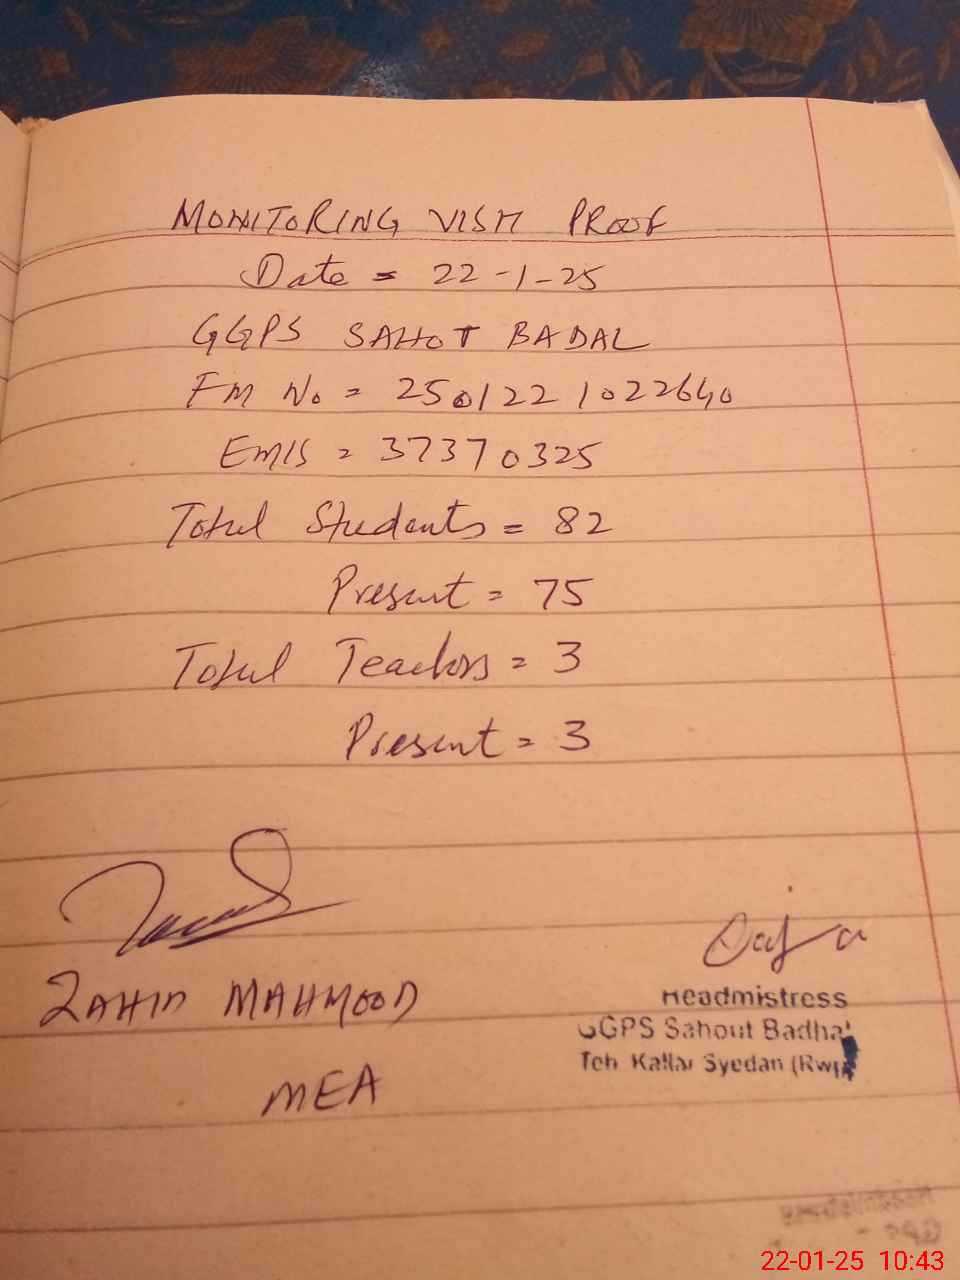 MONITORING VISIT PROOF
Date = 22-1-25
GGPS SAHOT BADAL
FM No = 2501221022640
EMIS = 37370325
Total Students = 82
Present = 75
Total Teachers = 3
Present = 3
ZAHID MAHMOOD
MEA
Headmistress
GGPS Sahout Badhal
Teh Kallar Syedan (Rwp)
22-01-25 10:43